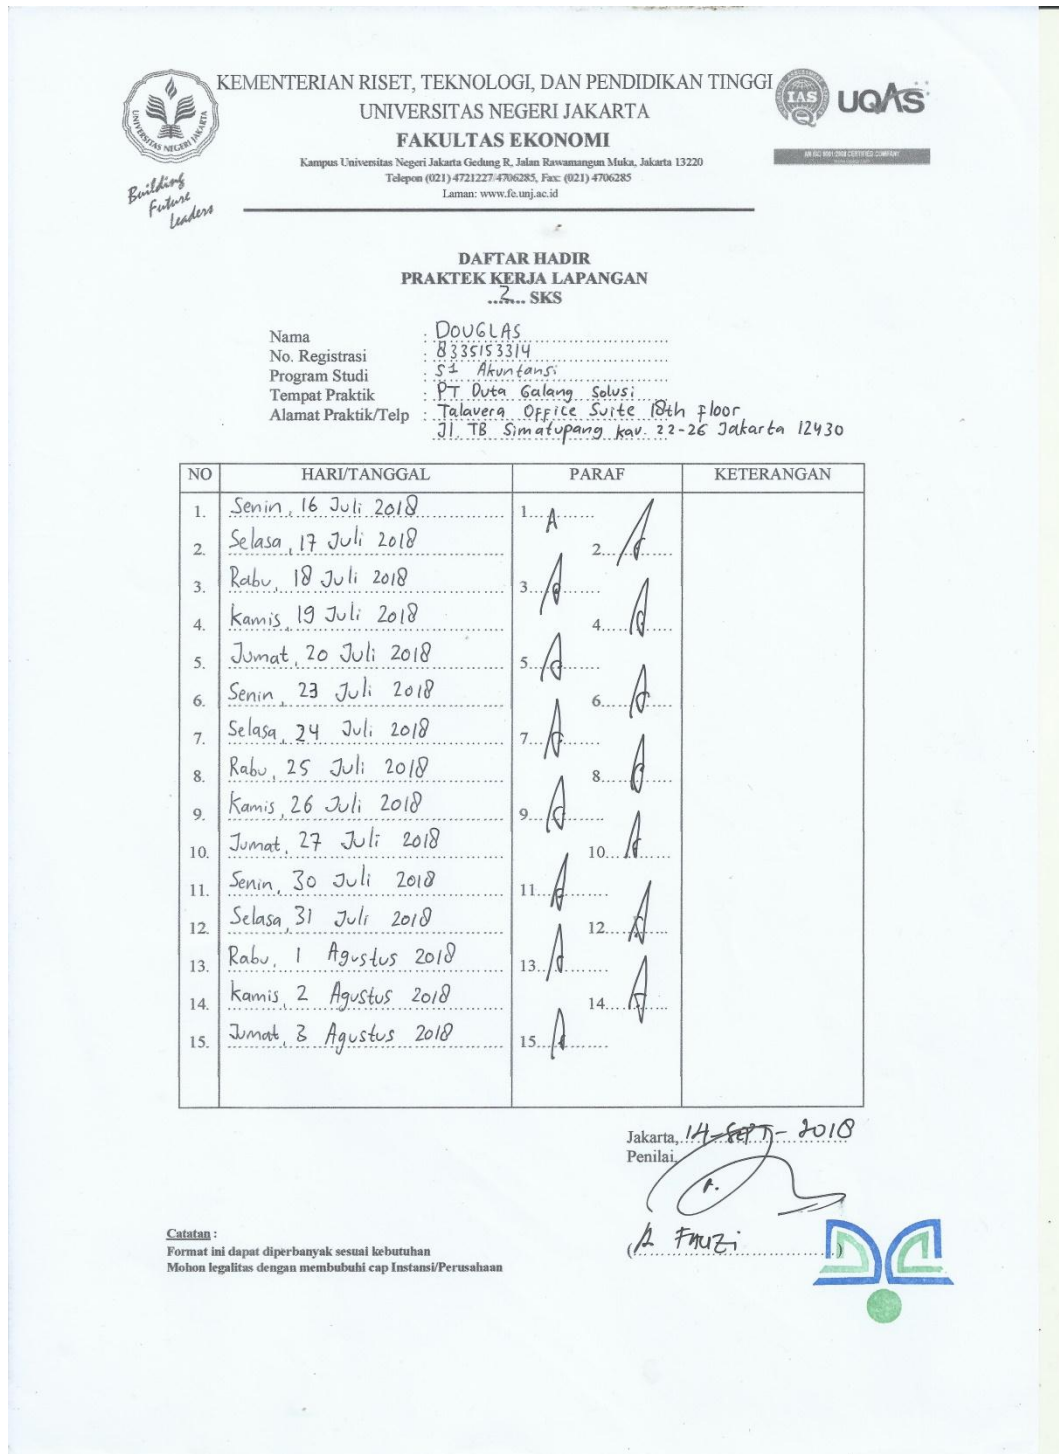 KEMENTERIAN RISET, TEKNOLOGI, DAN PENDIDIKAN TINGGI
UNIVERSITAS NEGERI JAKARTA
FAKULTAS EKONOMI
Kampus Universitas Negeri Jakarta Gedung R, Jalan Rawamangun Muka, Jakarta 13220
Telepon (021) 4721227/4706285, Fax: (021) 4706285
Laman: www.fe.unj.ac.id
UNIVERSITAS NEGERI JAKARTA
Building
Future
Leaders
IAS
UQAS
AN ISO 9001:2008 CERTIFIED COMPANY
DAFTAR HADIR
PRAKTEK KERJA LAPANGAN
..2.... SKS
Nama : DOUGLAS
No. Registrasi : 8335153314
Program Studi : S1 Akuntansi
Tempat Praktik : PT Duta Galang Solusi
Alamat Praktik/Telp : Talavera Office Suite 18th floor
Jl. TB Simatupang kav. 22-26 Jakarta 12430
NO HARI/TANGGAL PARAF KETERANGAN
1. Senin, 16 Juli 2018 1
2. Selasa, 17 Juli 2018 2
3. Rabu, 18 Juli 2018 3
4. Kamis, 19 Juli 2018 4
5. Jumat, 20 Juli 2018 5
6. Senin, 23 Juli 2018 6
7. Selasa, 24 Juli 2018 7
8. Rabu, 25 Juli 2018 8
9. Kamis, 26 Juli 2018 9
10. Jumat, 27 Juli 2018 10
11. Senin, 30 Juli 2018 11
12. Selasa, 31 Juli 2018 12
13. Rabu, 1 Agustus 2018 13
14. Kamis, 2 Agustus 2018 14
15. Jumat, 3 Agustus 2018 15
Jakarta, 14-SEPT-2018
Penilai,
(A FAUZI)
Catatan :
Format ini dapat diperbanyak sesuai kebutuhan
Mohon legalitas dengan membubuhi cap Instansi/Perusahaan